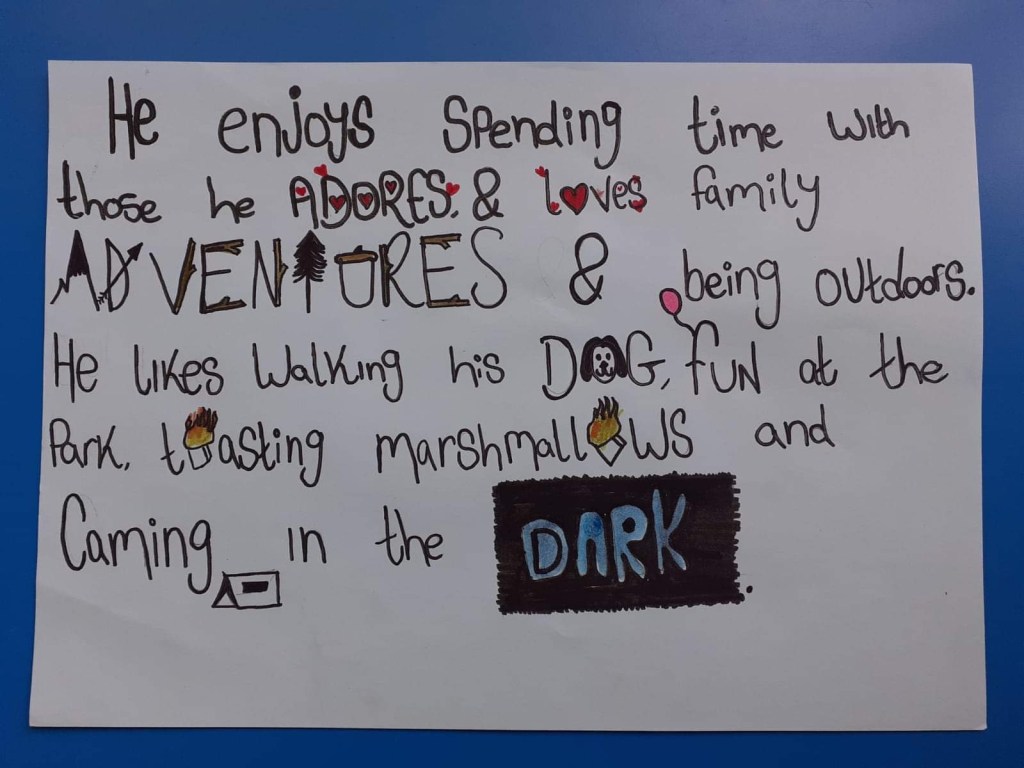 He enjoys spending time with
those he ADORES. & loves family
ADVENTURES & being outdoors.
He likes walking his DOG, fUN at the
Park, toasting marshmallows and
Caming in the DARK.